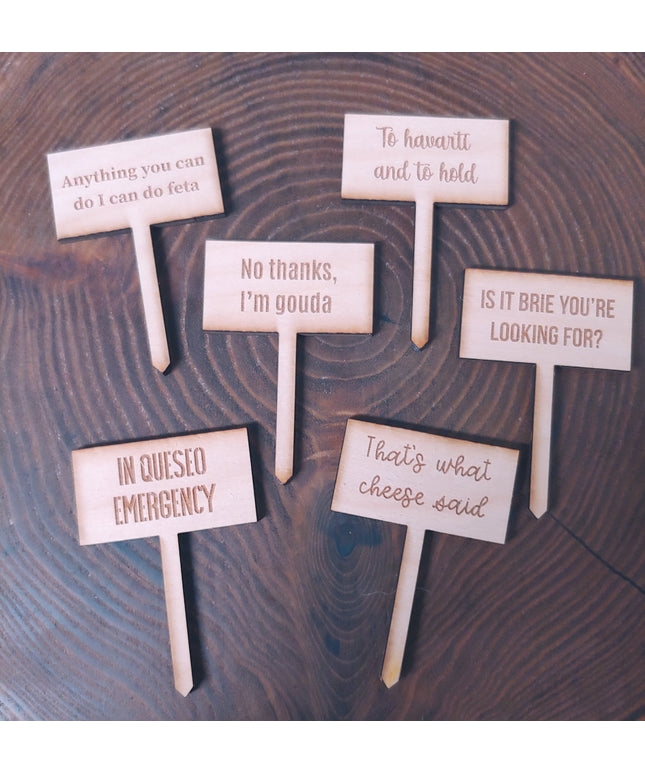 Anything you can
do I can do feta
To havarti
and to hold
No thanks,
I'm gouda
IS IT BRIE YOU'RE
LOOKING FOR?
IN QUESEO
EMERGENCY
That's what
cheese said